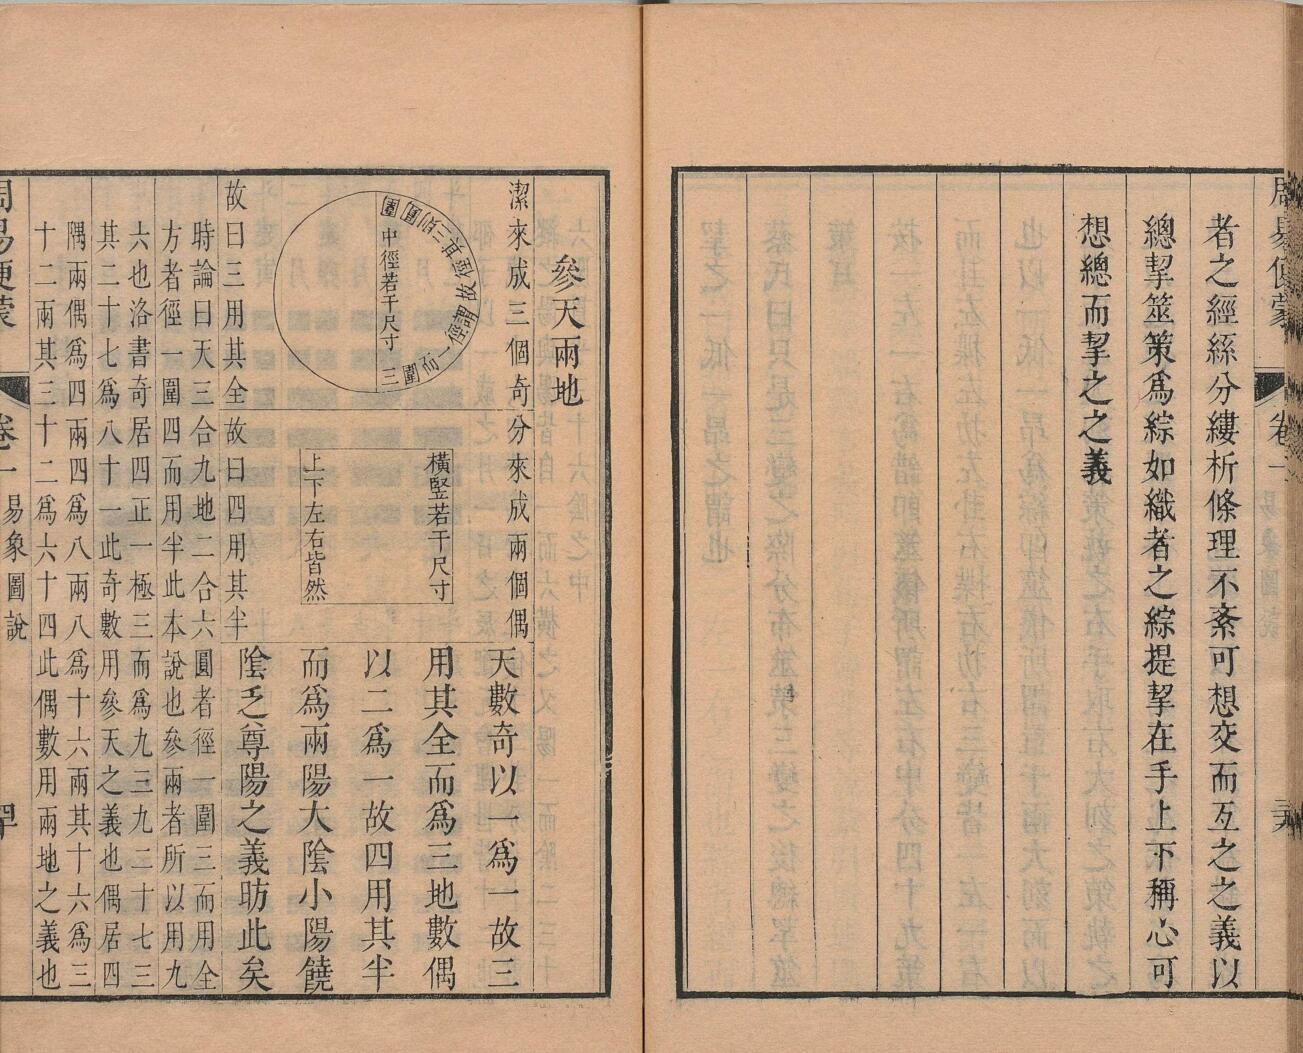 周易便蒙
卷一
者之經絲分縷析條理不紊可想交而互之之義以
總挈筮策爲綜如織者之綜提挈在手上下稱心可
想總而挈之之義
參天兩地
潔來成三個奇
圍三則圓
中徑若干尺寸
三
故曰三用其全
分來成兩個偶
橫竪若干尺寸
上下左右皆然
故曰四用其半
天數奇以一爲一故三
用其全而爲三地數偶
以二爲一故四用其半
而爲兩陽大陰小陽饒
陰乏尊陽之義昉此矣
時論曰天三合九地二合六圓者徑一圍三而用全
方者徑一圍四而用半此本說也參兩者所以用九
六也洛書奇居四正一極三而爲九三九二十七三
其二十七爲八十一此奇數用參天之義也偶居四
隅兩偶爲四兩四爲八兩八爲十六兩其十六爲三
十二兩其三十二爲六十四此偶數用兩地之義也
周易便蒙
卷一
易象圖說